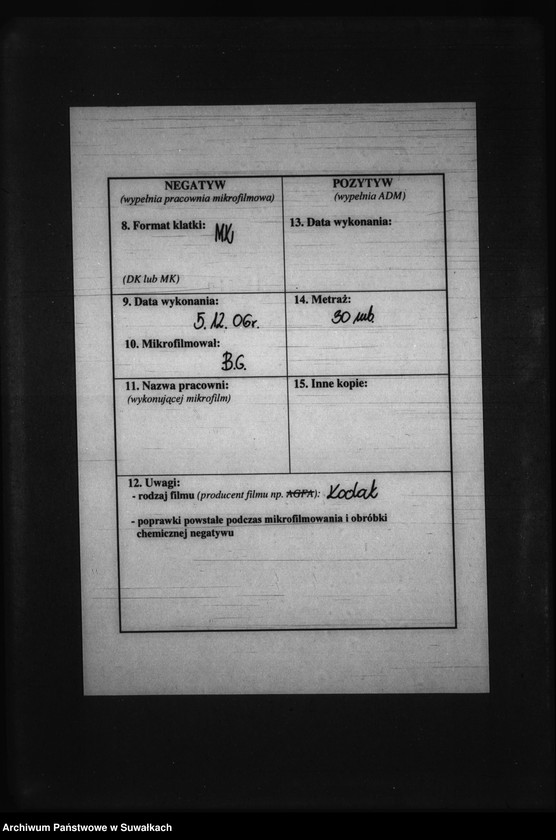 NEGATYW
(wypełnia pracownia mikrofilmowa)
POZYTYW
(wypełnia ADM)
8. Format klatki: MK
(DK lub MK)
13. Data wykonania:
9. Data wykonania:
5.12.06r.
10. Mikrofilmował:
B.G.
14. Metraż:
30 mb.
11. Nazwa pracowni:
(wykonującej mikrofilm)
15. Inne kopie:
12. Uwagi:
- rodzaj filmu (producent filmu np. AGFA): Kodak
- poprawki powstałe podczas mikrofilmowania i obróbki
chemicznej negatywu
Archiwum Państwowe w Suwałkach